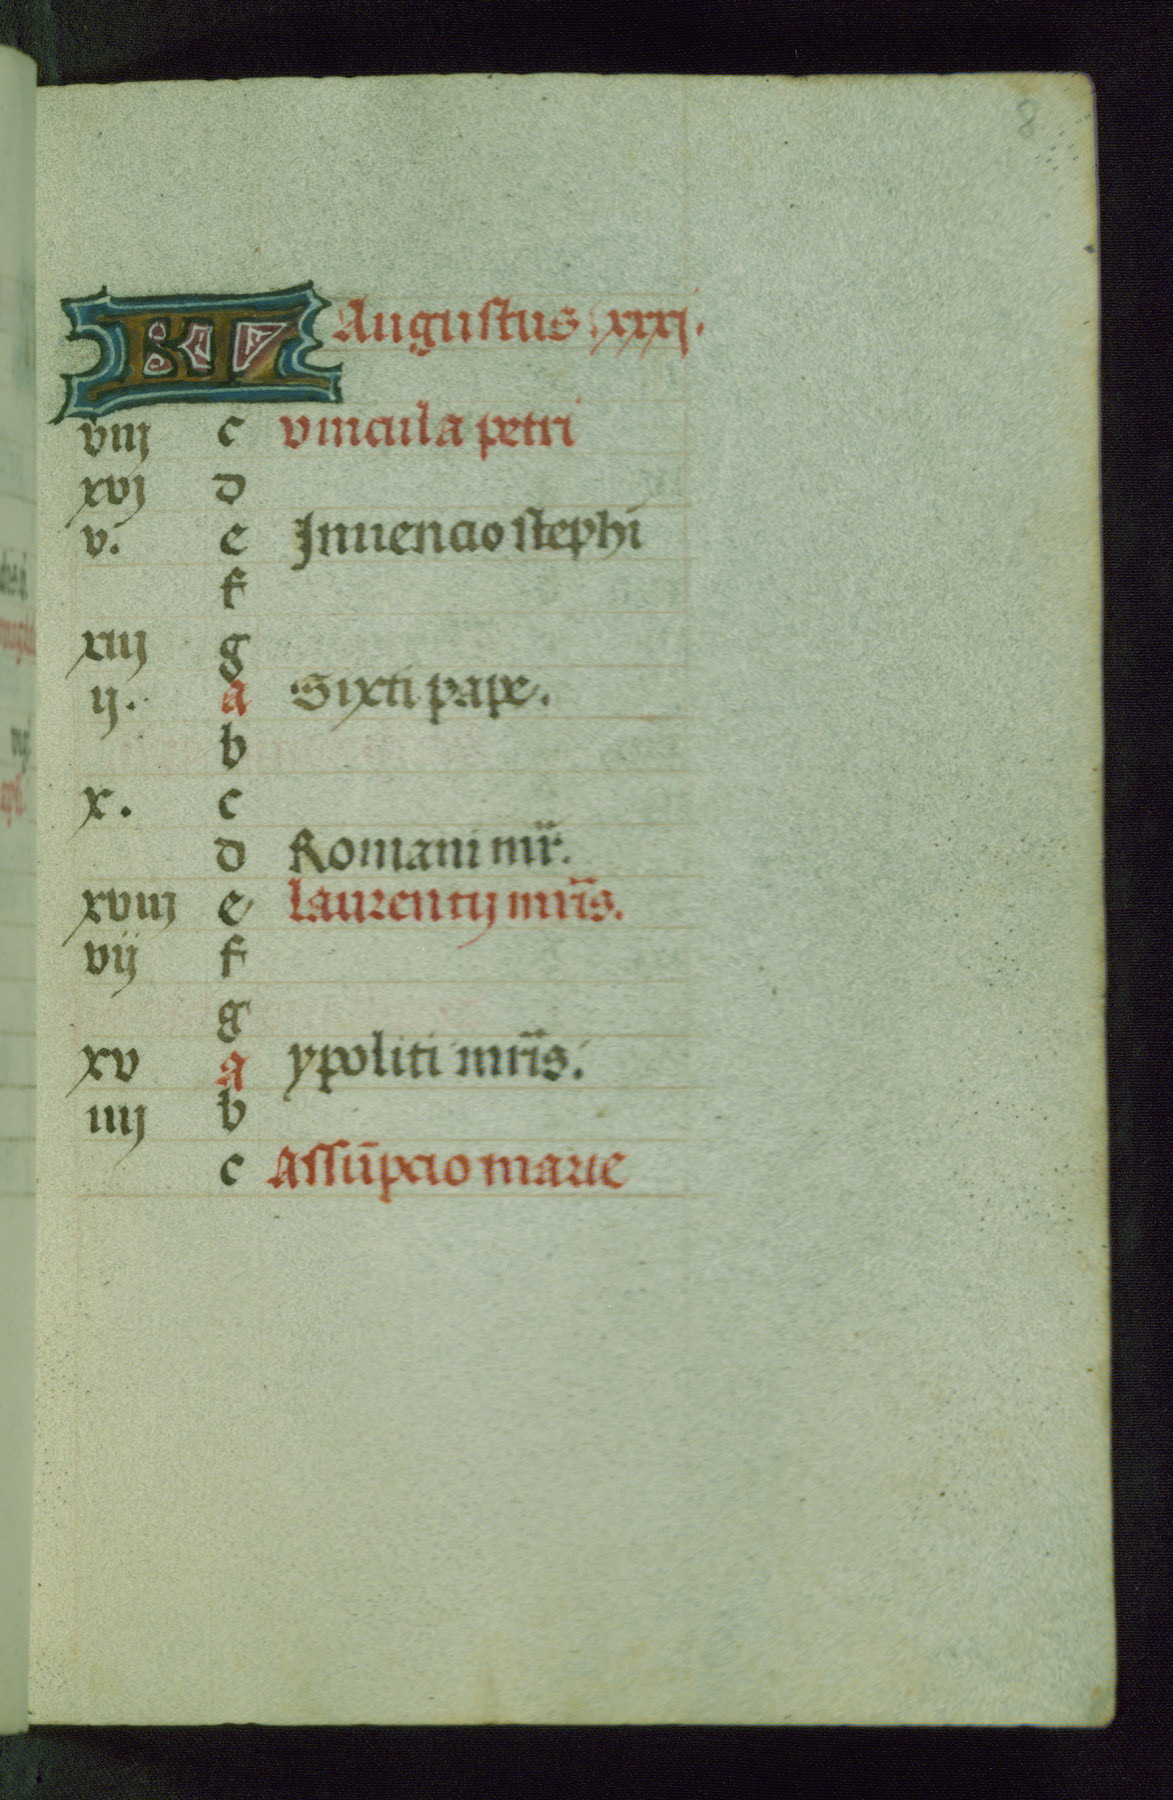 8
KL Augustus .xxxj.
viij c vincula petri
xvj d
v. e Inuencio stephi
f
xiij g
ij. a Sixti pape.
b
x. c
d Romani mr̄.
xviij e laurentij mr̄is.
vij f
g
xv a ypoliti mr̄is.
iiij b
c Assūpcio marie